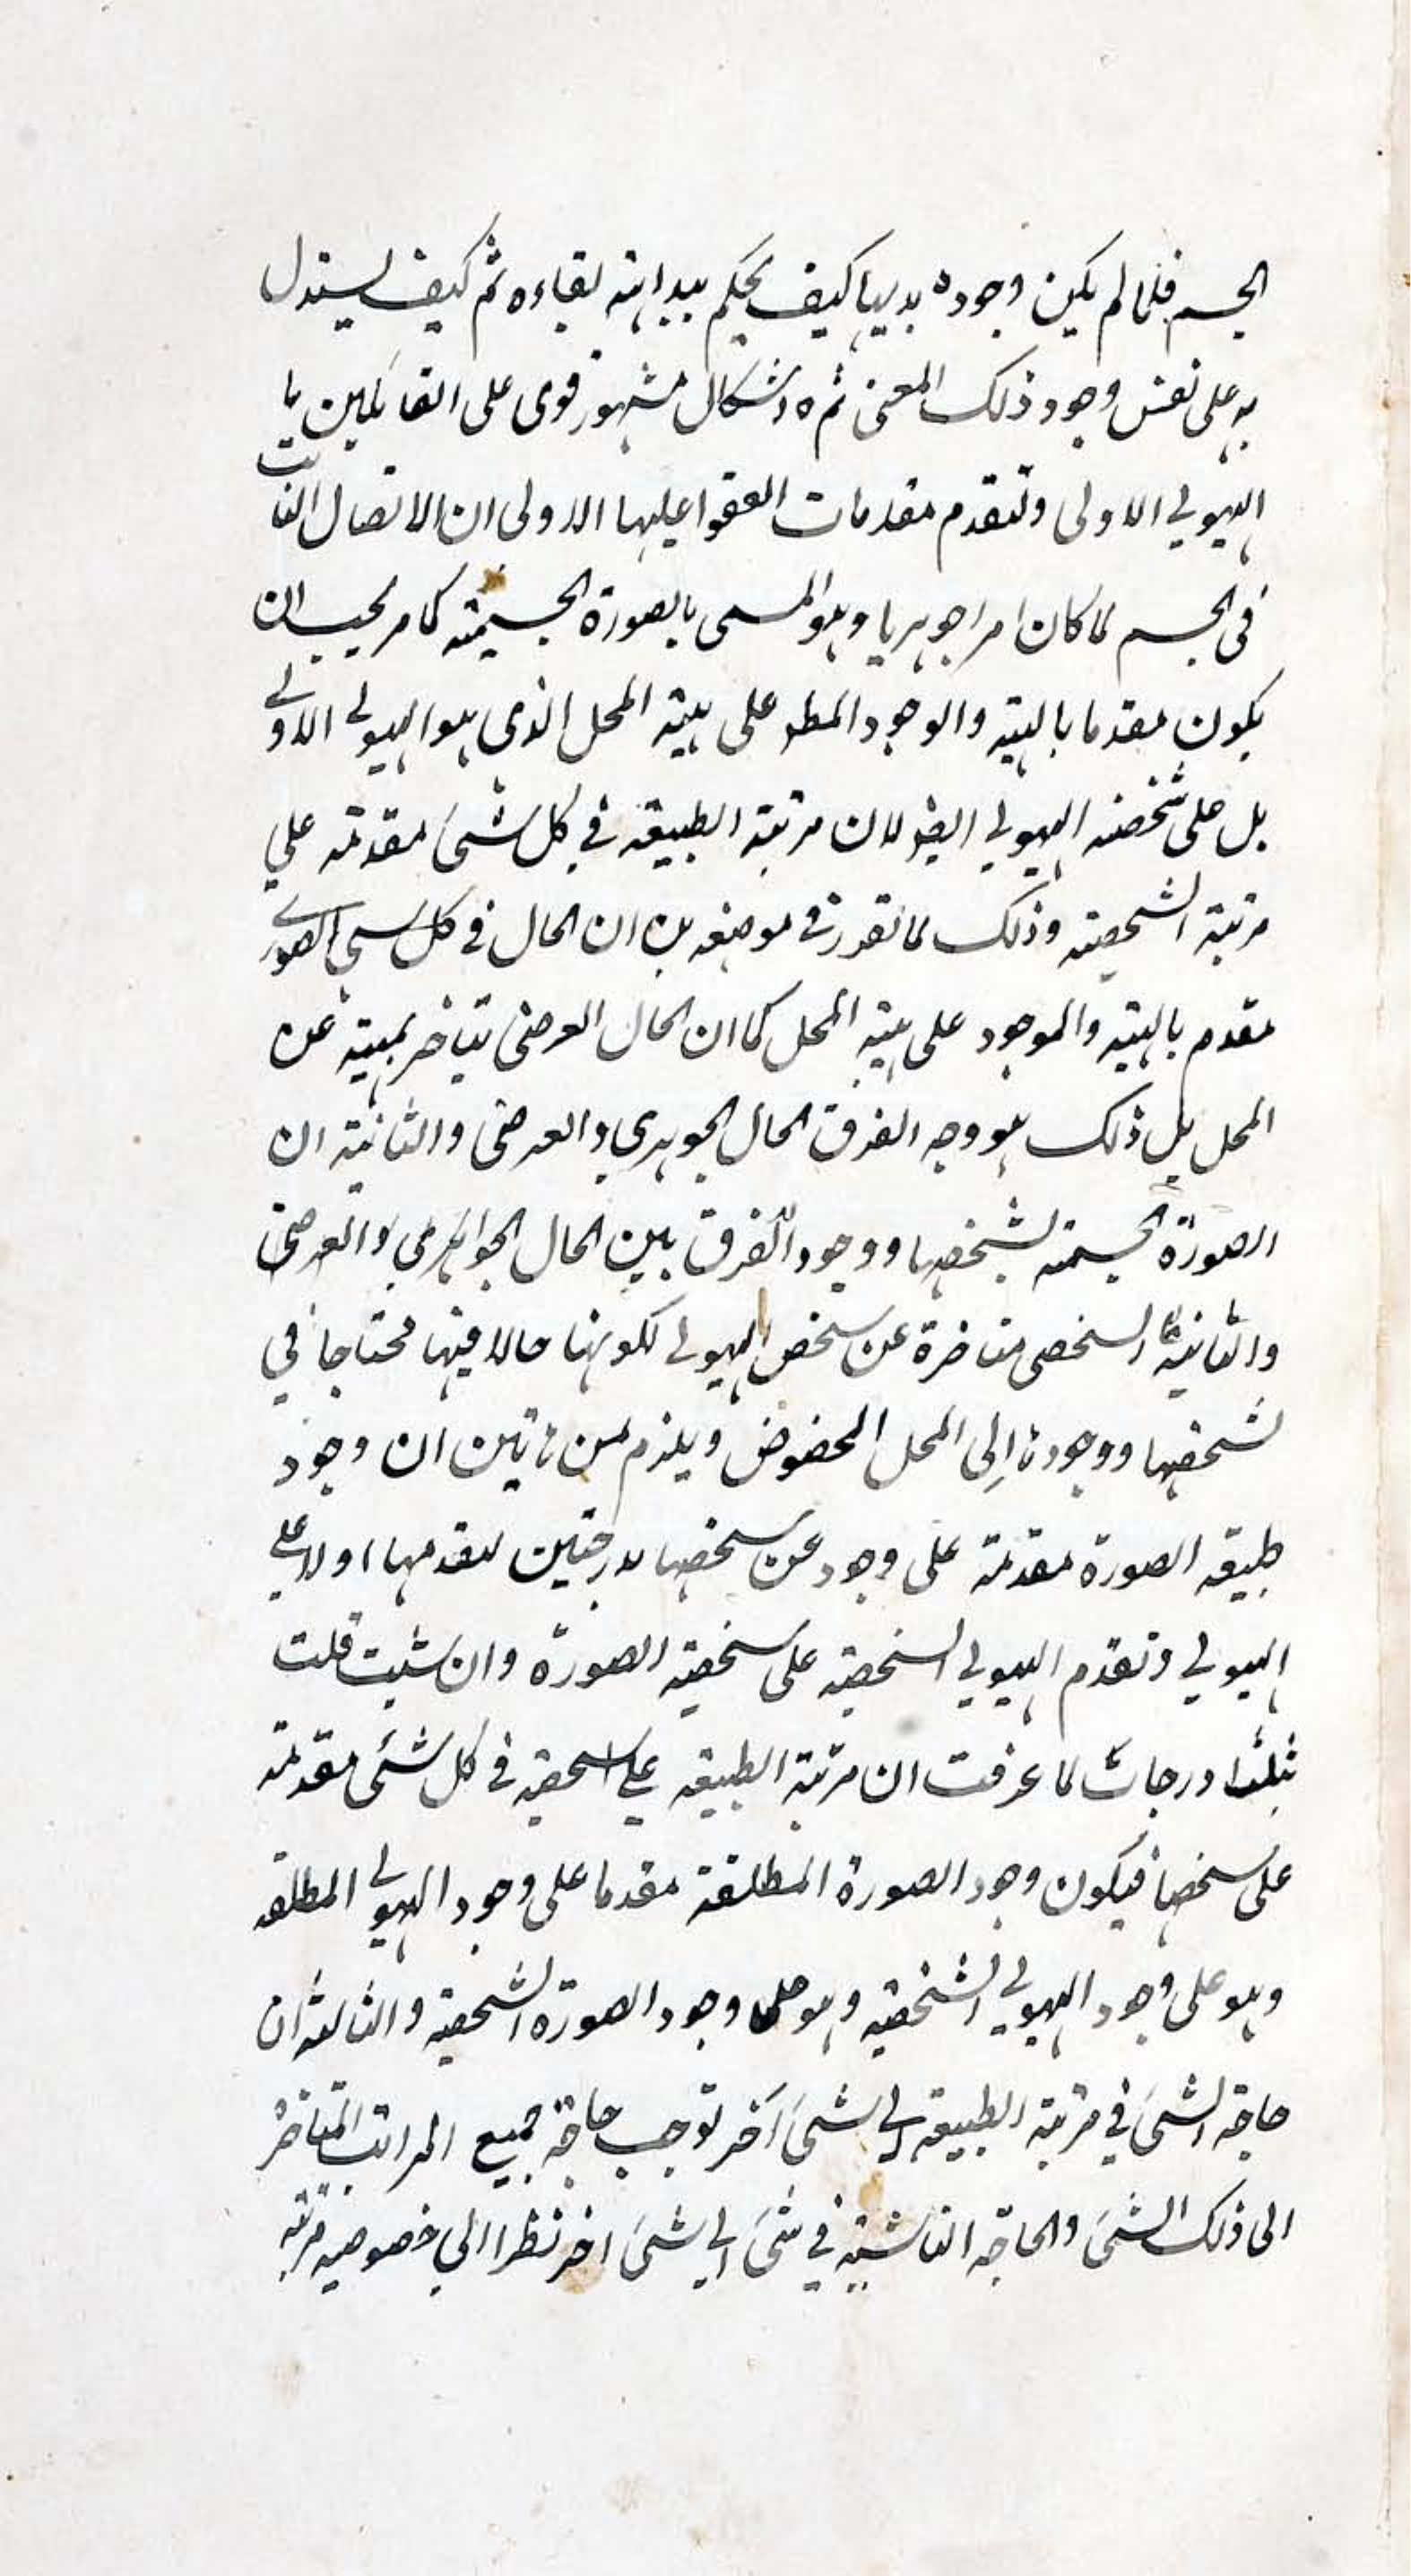 الجسم فلما لم يكن وجوده بديهيا كيف يحكم ببداهته لبقاءه ثم كيف يستدل
به على نفس وجود ذلك المعنى ثم ه اشكال مشهور قوى على القائلين با
الهيولي الاولى ولنقدم مقدمات اتفقوا عليها الاولى ان الاتصال الثابت
فى الجسم لما كان امرا جوهريا وهو المسمى بالصورة الجسمية كما مر يجب ان
يكون مقدما بالهية والوجود المطر على هية المحل الذى هو الهيولى الاولى
بل على تشخصه الهيولي ايض لان مرتبة الطبيعة في كل شىء مقدمة علي
مرتبة الشخصية وذلك لما تقرر في موضعه من ان الحال في كل سمي الصورى
مقدم بالهية والموجود على هية المحل كما ان الحال العرضى يتاخر بهية عن
المحل بل ذلك هو وجه الفرق الحال الجوهري والعرضى والثانية ان
الصورة الجسمية لشخصها ووجود الفرق بين الحال الجواهرى والعرضى
والثانية الشخصى متاخرة عن سخص الهيولى لكونها حالا فيها محتاجا في
تشخصها ووجودها إلى المحل المخصوص ويلزم من هاتين ان وجود
طبيعة الصورة مقدمة على وجود عن سخصها بدرجتين لتقدمها اولا على
الهيولي وتقدم الهيولي السخصية على سخصية الصورة وان شئت قلت
بثلث درجات لما عرفت ان مرتبة الطبيعة على السحصية في كل شىء مقدمة
على سخصها فيكون وجود الصورة المطلقة مقدما على وجود الهيولى المطلقة
وهو على وجود الهيولي الشخصية وهو على وجود الصورة الشخصية والثالثة ان
حاجة الشىء في مرتبة الطبيعة الى شىء آخر توجب حاجة جميع المراتب المتاخرة
الى ذلك الشىء والحاجة الناشية في شىء الى شىء اخر نظرا الي خصوصية مرتبة